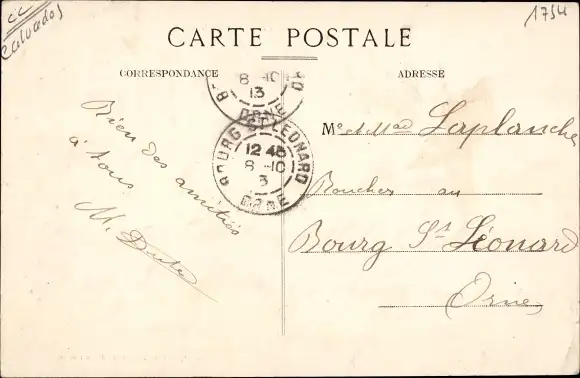 CC
Calvados
1754
CARTE POSTALE
CORRESPONDANCE
ADRESSE
8 -10
13
ORNE
BOURG ST LEONARD
12 45
8 -10
3
ORNE
Bien des amitiés
à tous
M.
Mr et Mad Laplanche
Boucher au
Bourg St Léonard
Orne